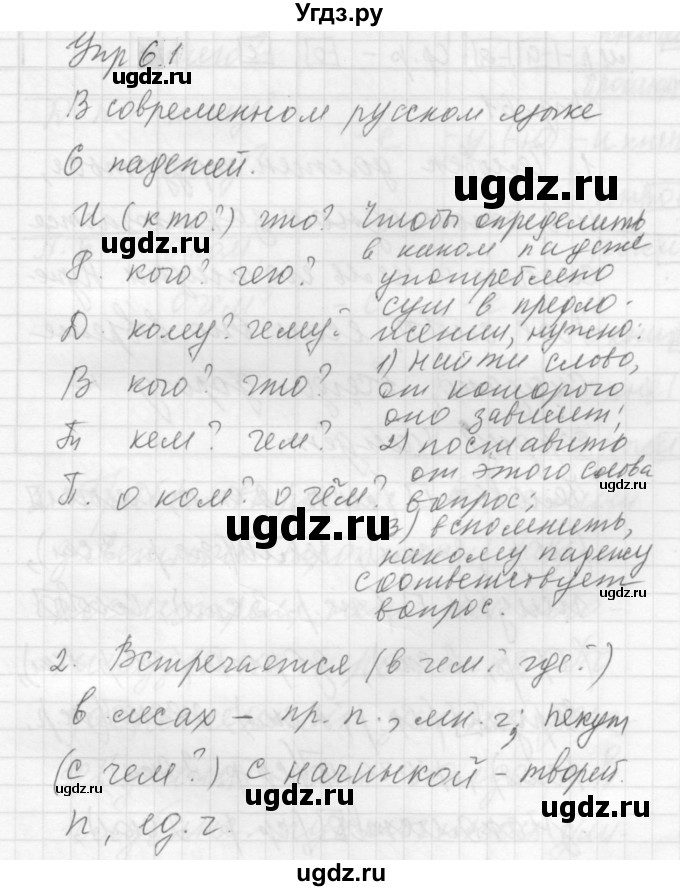 Угдз.ру
Упр 6.1
В современном русском языке
6 падежей.
И (кто?) что?
Р. кого? чего?
Д. кому? чему?
В кого? что?
Тв кем? чем?
П. о ком? о чём?
Чтобы определить
в каком падеже
употреблено
сущ в предло-
жении, нужно:
1) найти слово,
от которого
оно зависит;
2) поставить
от этого слова
вопрос;
3) вспомнить,
какому падежу
соответствует
вопрос.
2. Встречаются (в чем? где?)
в лесах – пр. п., мн. ч; пекут
(с чем?) с начинкой – творит.
п, ед. ч.
ugdz.ru
ugdz.ru
ugdz.ru
ugdz.ru
ugdz.ru
ugdz.ru
ugdz.ru
ugdz.ru
ugdz.ru
ugdz.ru
ugdz.ru